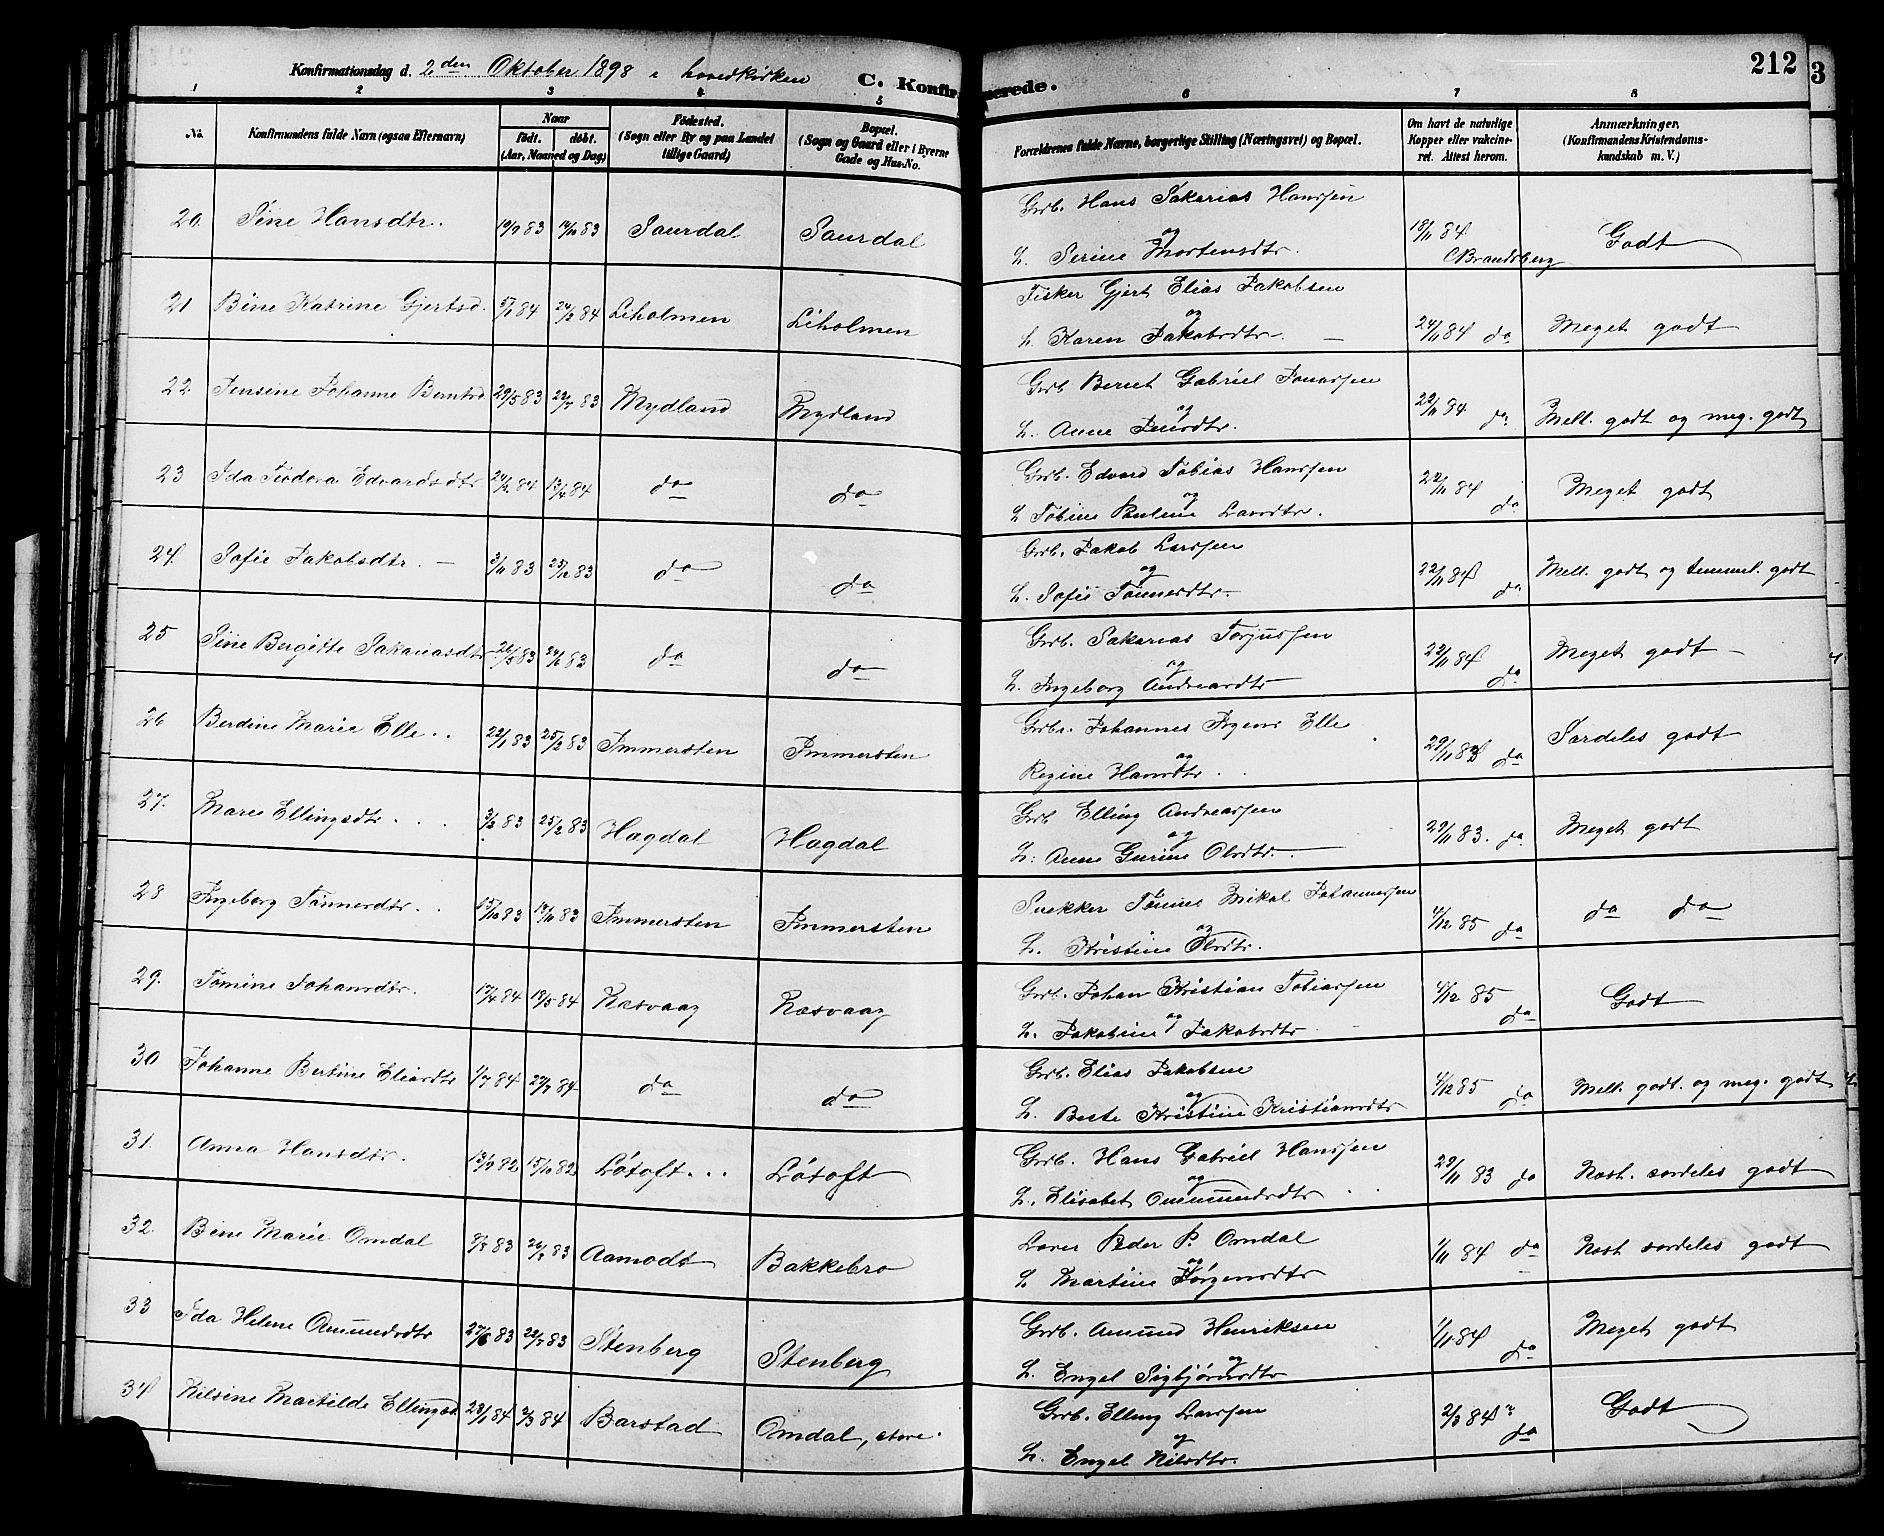 Konfirmationsdag d. 2den Oktober 1898 i hovedkirken
C. Konfirmerede.
212
3
1 2 3 4 5 6 7 8
No. Konfirmandens fulde Navn (ogsaa Efternavn) Naar født. døbt. (Aar, Maaned og Dag) Fødested. (Sogn eller By og paa Landet tillige Gaard) Bopæl. (Sogn og Gaard eller i Byerne Gade og Hus-No. Forældrenes fulde Navne, borgerlige Stilling (Næringsvei) og Bopæl. Om havt de naturlige Kopper eller vakcineret. Attest herom. Anmærkninger. (Konfirmandens Kristendomskundskab m. V.)
20. Sine Hansdtr. 19/9 83 14/10 83 Saurdal Saurdal Grb. Hans Sakarias Hanssen og H. Serine Mortensdtr. 19/11 84 C Brandsberg Godt
21 Bine Katrine Gjertsd. 5/1 84 24/2 84 Liholmen Liholmen Fisker Gjert Elias Jakobsen og H. Karen Jakobsdtr. 24/11 84 do Meget godt
22. Jensine Johanne Berntsd 29/5 83 22/7 83 Mydland Mydland Grb Bernt Gabriel Jonassen og H. Anne Jensdtr. 22/11 84 do Mell. godt og meg. godt
23 Ida Teodora Edvardsdtr 24/2 84 13/4 84 do do Grb. Edvard Tobias Hanssen og H Tobine Pauline Larsdtr. 22/11 84 do Meget godt
24. Sofie Jakobsdtr. 3/11 83 25/12 83 do do Grb. Jakob Larssen og H. Sofie Tønnesdtr 22/11 84 do Mell. godt og temmel. godt
25 Sine Bergitte Sakariasdtr 26/5 83 24/6 83 do do Grb. Sakarias Torjussen og H. Ingeborg Andreasdtr 22/11 84 do Meget godt
26 Berdine Marie Elle 22/1 83 25/2 83 Immersten Immersten Grb. Johannes Elle og Regine Hansdtr. 29/11 83 do Særdeles godt
27. Marie Ellingsdtr. 3/2 83 25/2 83 Hægdal Hægdal Grb Elling Andreassen og H. Anne Gurine Olsdtr. 29/11 83. do Meget godt
28 Ingeborg Tønnesdtr. 15/10 83 18/11 83 Immersten Immersten Snekker Tønnes Mikal Johannessen og H. Kristine Olsdtr. 4/12 85 do do do
29. Tomine Johansdtr. 17/4 84 19/5 84 Næsvaag Næsvaag Grb. Johan Kristian Tobiassen og H. Jakobine Jakobsdtr 4/12 85 do Godt
30 Johanne Bertine Eliasdtr 1/7 84 27/7 84 do do Grb. Elias Jakobsen og H. Berte Kristine Kristiansdtr 4/12 85 do Mell. godt. og meg. godt
31. Anna Hansdtr. 13/9 82 15/10 82 Løtoft Løtoft Grb. Hans Gabriel Hanssen og H. Elisabet Ommundsdtr 29/11 83 do Næst. særdeles godt
32. Bine Marie Omdal 26/3 83 Aamodt Bakkebro Peder P. Omdal og H. Martine Jørgensdtr 1/11 84 do Næst særdeles godt
33 Ida Helene Amundsdtr 27/6 83 22/7 83 Stenberg Stenberg Grb. Amund Henriksen og H. Engel Sigbjørnsdtr 1/11 84 do Meget godt
34 Nilsine Matilde Ellingsd 23/1 84 2/3 84 Barstad Omdal, store. Grb. Elling Larssen og H. Engel Nilsdtr. 2/3 84 do Godt